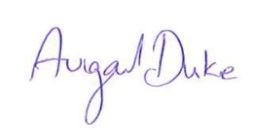 Avigail Duke